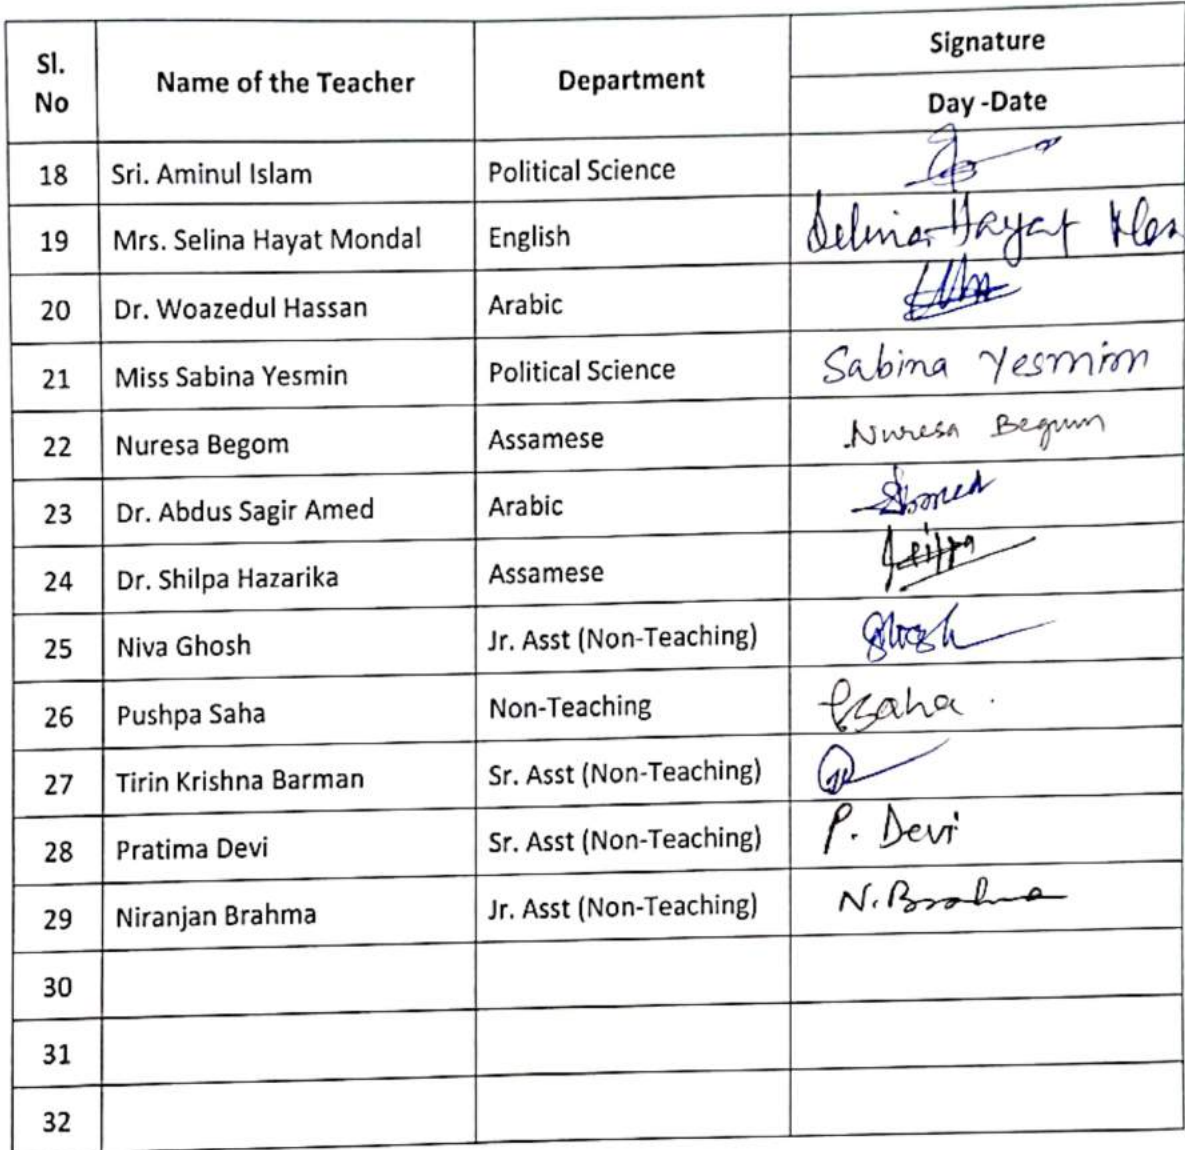 Sl. No Name of the Teacher Department Signature
Day -Date
18 Sri. Aminul Islam Political Science
19 Mrs. Selina Hayat Mondal English Selina Hayat
20 Dr. Woazedul Hassan Arabic
21 Miss Sabina Yesmin Political Science Sabina Yesmin
22 Nuresa Begom Assamese Nuresa Begum
23 Dr. Abdus Sagir Amed Arabic
24 Dr. Shilpa Hazarika Assamese
25 Niva Ghosh Jr. Asst (Non-Teaching) Ghosh
26 Pushpa Saha Non-Teaching PSaha
27 Tirin Krishna Barman Sr. Asst (Non-Teaching)
28 Pratima Devi Sr. Asst (Non-Teaching) P. Devi
29 Niranjan Brahma Jr. Asst (Non-Teaching) N. Brahma
30
31
32